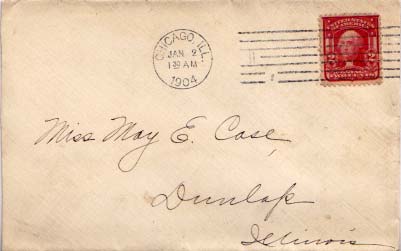 CHICAGO, ILL.
JAN 2
1 30 AM
1904
2 2
Miss May E. Case,
Dunlap
Illinois